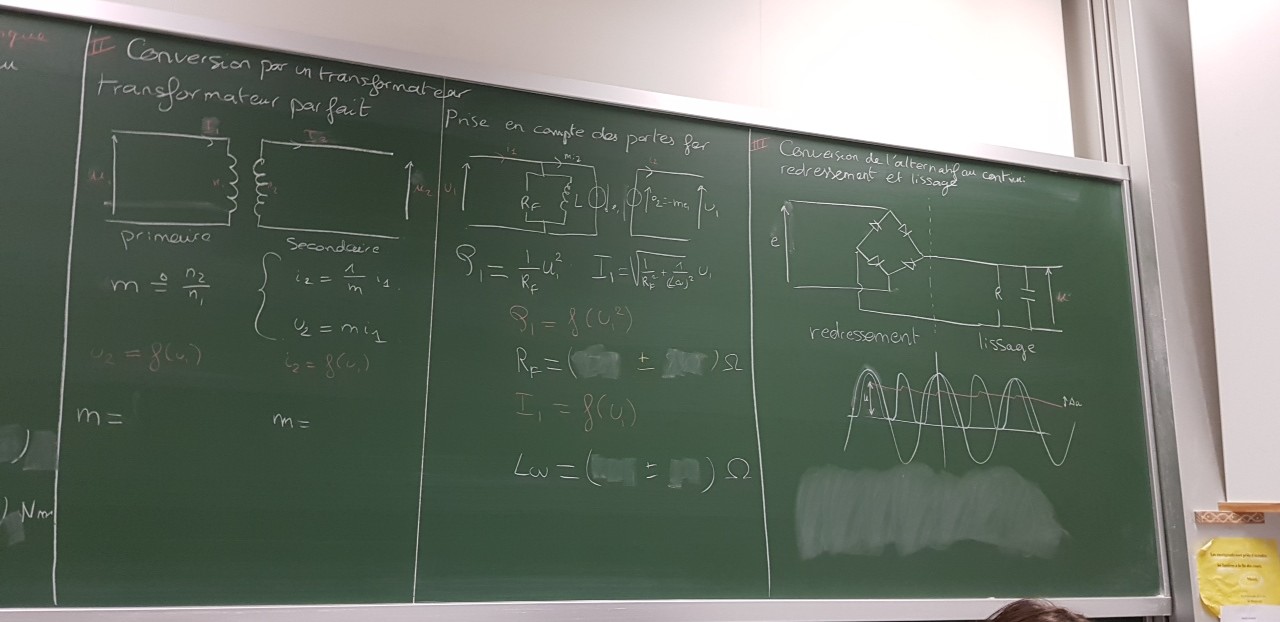 ique
II Conversion par un transformateur
Transformateur parfait
I1
u1
n1
n2
u2
primaire
Secondaire
m ≙ n2/n1
i2 = 1/m i1
u2 = m i1
u2 = f(u1)
i2 = f(i1)
m =
m =
) Nm
Prise en compte des pertes fer
i1
i2
U1
RF
L
e2=-me1
U1
P1 = 1/RF U1²
I1 = √(1/RF² + 1/(Lω)²) U1
P1 = f(U1²)
RF = ( ± ) Ω
I1 = f(U1)
Lω = ( ± ) Ω
III Conversion de l'alternatif au continu
redressement et lissage
e
R
u
redressement
lissage
Δu